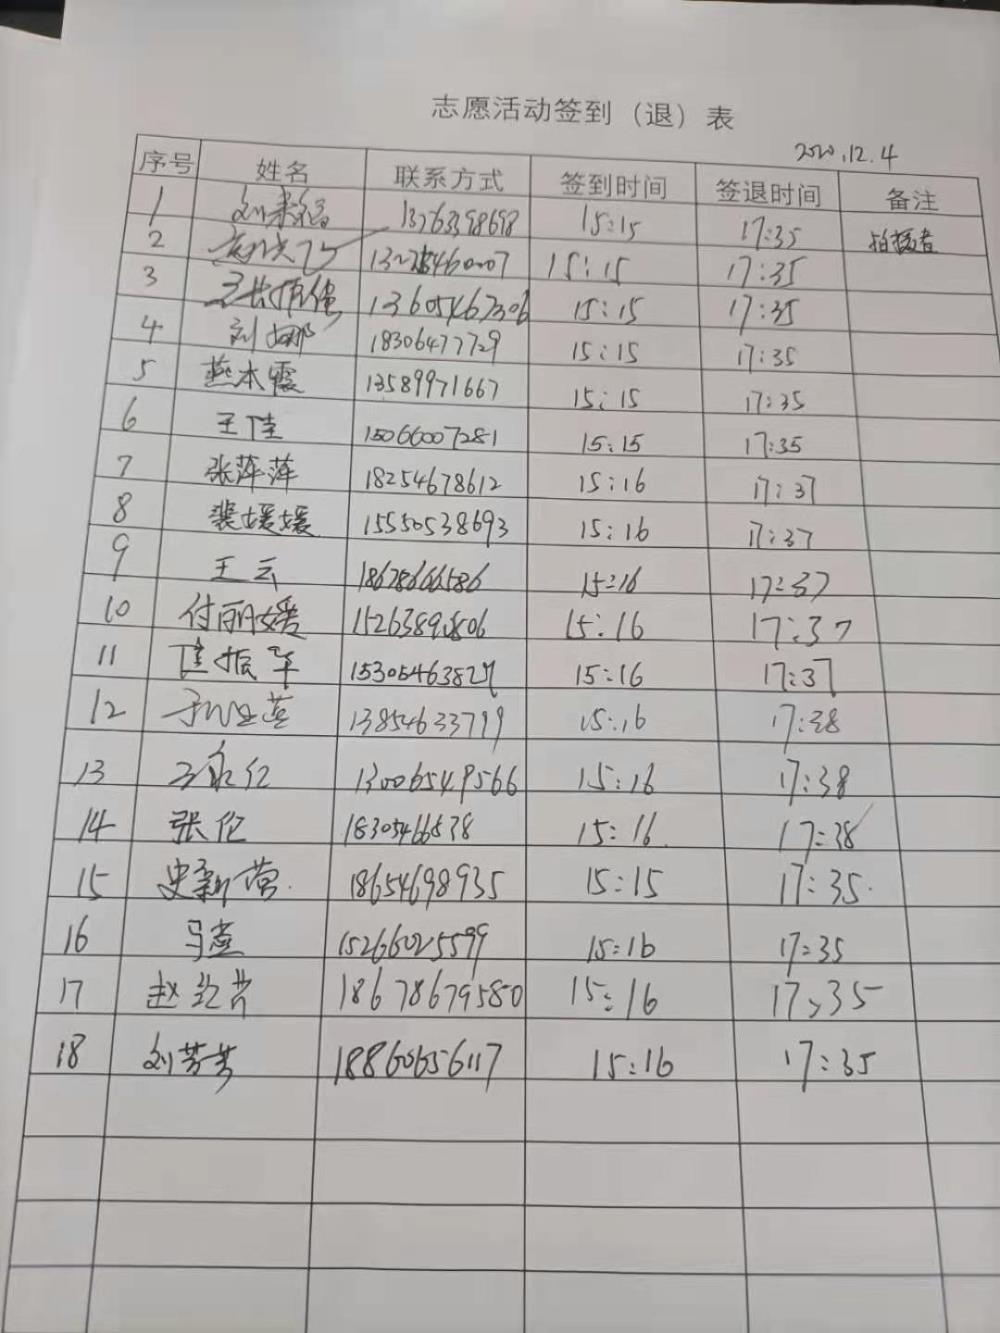 志愿活动签到（退）表
2020.12.4
序号 姓名 联系方式 签到时间 签退时间 备注
1 13763398698 15:15 17:35 拍摄者
2 15:15 17:35
3 13605467306 15:15 17:35
4 刘娜 18306477729 15:15 17:35
5 燕本霞 13589971667 15:15 17:35
6 王佳 15066007281 15:15 17:35
7 张萍萍 18254678612 15:16 17:37
8 裴媛媛 15550538693 15:16 17:37
9 王云 18678666586 15:16 17:37
10 付丽媛 15:16 17:37
11 15:16 17:37
12 13854633799 15:16 17:38
13 王永红 13006549566 15:16 17:38
14 张伦 15:16 17:38
15 史新营 18654698935 15:15 17:35
16 马燕 15266025599 15:16 17:35
17 赵 18678679580 15:16 17:35
18 刘芳芳 18860656117 15:16 17:35